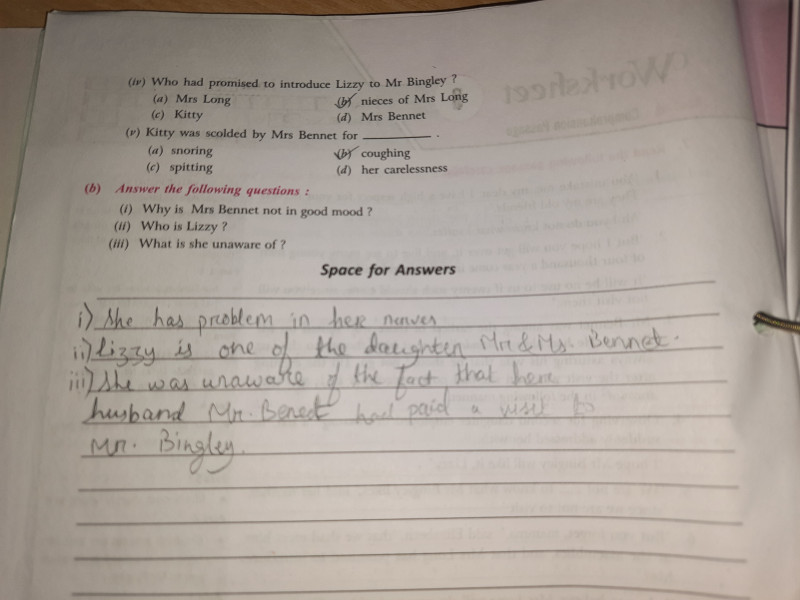 (iv) Who had promised to introduce Lizzy to Mr Bingley ?
(a) Mrs Long (b) nieces of Mrs Long
(c) Kitty (d) Mrs Bennet
(v) Kitty was scolded by Mrs Bennet for __________ .
(a) snoring (b) coughing
(c) spitting (d) her carelessness
(b) Answer the following questions :
(i) Why is Mrs Bennet not in good mood ?
(ii) Who is Lizzy ?
(iii) What is she unaware of ?
Space for Answers
i) She has problem in her nerves
ii) Lizzy is one of the daughter Mr & Ms. Bennet.
iii) She was unaware of the fact that her
husband Mr. Benet had paid a visit to
Mr. Bingley.
Worksheet